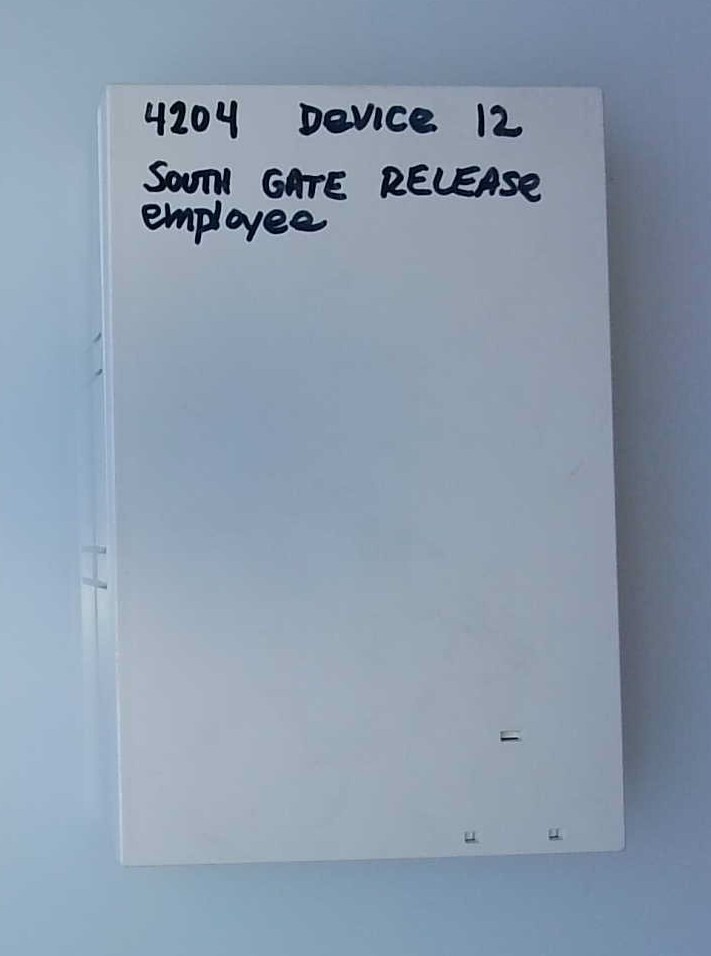 4204 DeVICe 12
SOUTH GATE RELEASe
employee